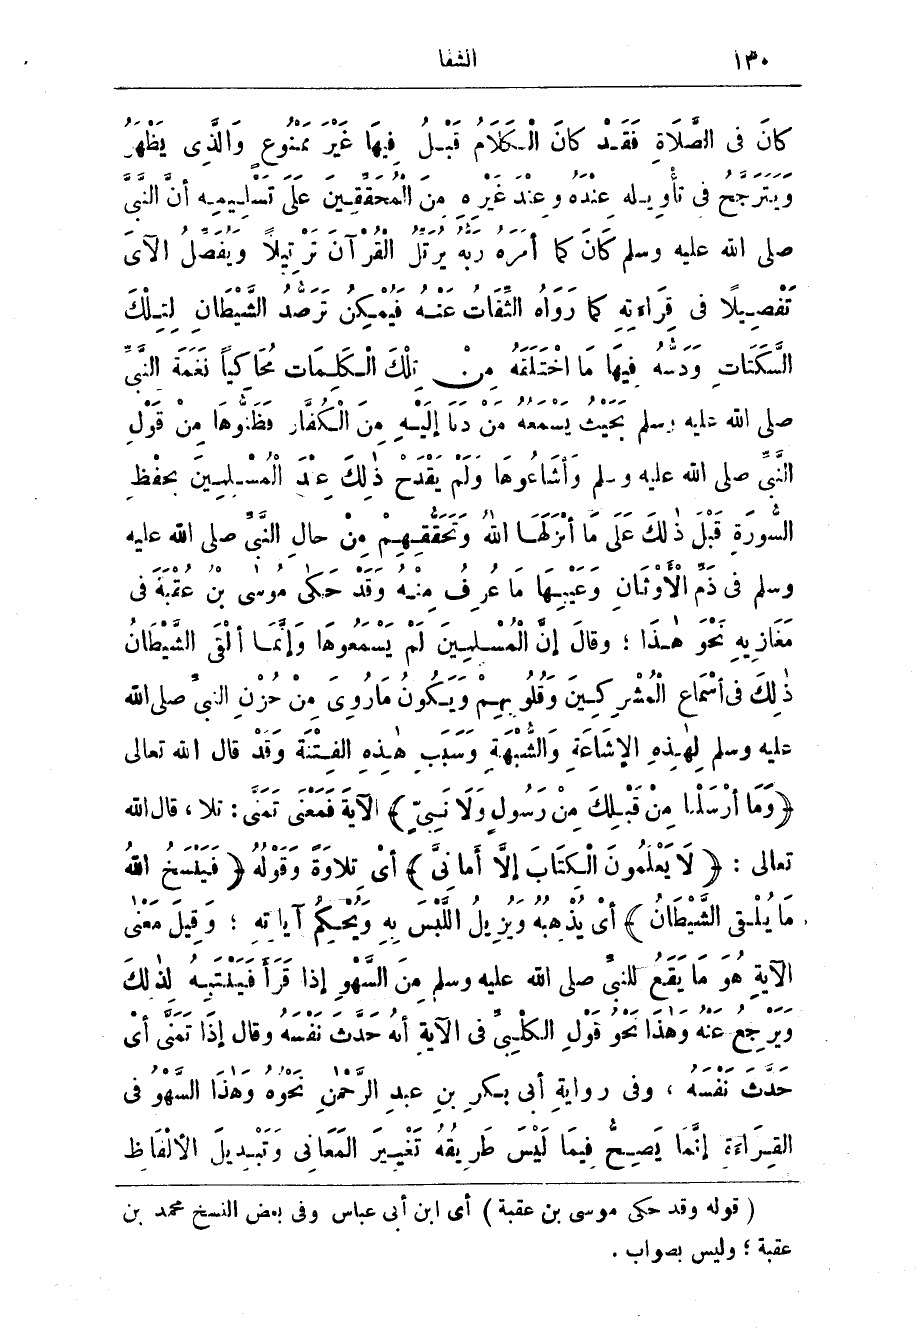 ١٣٠
الشفا
كَانَ فِى الصَّلَاةِ فَقَدْ كَانَ الْكَلَامُ قَبْلُ فِيهَا غَيْرَ مَمْنُوعٍ وَالَّذِى يَظْهَرُ
وَيَتَرَجَّحُ فِى تَأْوِيلِهِ عِنْدَهُ وَعِنْدَ غَيْرِهِ مِنَ الْمُحَقِّقِينَ عَلَى تَسْلِيمِهِ أَنَّ النَّبِىَّ
صلى الله عليه وسلم كَانَ كَمَا أَمَرَهُ رَبُّهُ يُرَتِّلُ الْقُرْآنَ تَرْتِيلًا وَيُفَصِّلُ الْآىَ
تَفْصِيلًا فِى قِرَاءَتِهِ كَمَا رَوَاهُ الثِّقَاتُ عَنْهُ فَيُمْكِنُ تَرَصُّدُ الشَّيْطَانِ لِتِلْكَ
السَّكَتَاتِ وَدَسُّهُ فِيهَا مَا اخْتَلَقَهُ مِنْ تِلْكَ الْكَلِمَاتِ مُحَاكِيًا نَغَمَةَ النَّبِىِّ
صلى الله عليه وسلم بِحَيْثُ يَسْمَعُهُ مَنْ دَنَا إِلَيْهِ مِنَ الْكُفَّارِ فَظَنُّوهَا مِنْ قَوْلِ
النَّبِىِّ صلى الله عليه وسلم وَأَشَاعُوهَا وَلَمْ يَقْدَحْ ذٰلِكَ عِنْدَ الْمُسْلِمِينَ بِحِفْظِ
السُّورَةِ قَبْلَ ذٰلِكَ عَلَى مَا أَنْزَلَهَا اللهُ وَتَحَقُّقِهِمْ مِنْ حالِ النَّبِىِّ صلى الله عليه
وسلم فِى ذَمِّ الْأَوْثَانِ وَعَيْبِهَا مَا عُرِفَ مِنْهُ وَقَدْ حَكَى مُوسَى بْنُ عُقْبَةَ فِى
مَغَازِيهِ نَحْوَ هٰذَا ؛ وقَالَ إِنَّ الْمُسْلِمِينَ لَمْ يَسْمَعُوهَا وَإِنَّمَا أَلْقَى الشَّيْطَانُ
ذٰلِكَ فِى أَسْمَاعِ الْمُشْرِكِينَ وَقُلُوبِهِمْ وَيَكُونُ مَارُوِىَ مِنْ حُزْنِ النبىِّ صلى الله
عليه وسلم لِهٰذِهِ الإِشَاعَةِ وَالشُّبْهَةِ وَسَبَبِ هٰذِهِ الفِتْنَةِ وَقَدْ قال الله تعالى
﴿وَمَا أَرْسَلْنَا مِنْ قَبْلِكَ مِنْ رَسُولٍ وَلَا نَبِىٍّ﴾ الآيَةَ فَمَعْنَى تَمَنَّى : تلا ، قال الله
تعالى : ﴿ لَا يَعْلَمُونَ الْكِتَابَ إِلَّا أَمَانِىَّ ﴾ أىْ تِلَاوَةً وَقَوْلُهُ ﴿ فَيَنْسَخُ اللهُ
مَا يُلْقِى الشَّيْطَانُ ﴾ أىْ يُذْهِبُهُ وَيُزِيلُ اللَّبْسَ بِهِ وَيُحْكِمُ آيَاتِهِ ؛ وَقِيلَ مَعْنَى
الآيَةِ هُوَ مَا يَقَعُ لِلنبىِّ صلى الله عليه وسلم مِنَ السَّهْوِ إذا قَرَأَ فَيَنْتَبِهُ لِذٰلِكَ
وَيَرْجِعُ عَنْهُ وَهٰذَا نَحْوُ قَوْلِ الكَلْبِىِّ فى الآيَةِ أنهُ حَدَّثَ نَفْسَهُ وقال إِذَا تَمَنَّى أىْ
حَدَّثَ نَفْسَهُ ، وفى روايَةِ أبى بكرِ بنِ عبدِ الرَّحْمٰنِ نَحْوُهُ وَهٰذَا السَّهْوُ فى
القِرَاءَةِ إِنَّمَا يَصِحُّ فِيمَا لَيْسَ طَرِيقُهُ تَغْيِيرَ المَعَانِى وَتَبْدِيلَ الأَلْفَاظِ
( قوله وقد حكى موسى بن عقبة ) أى ابن أبى عباس وفى بعض النسخ محمد بن
عقبة ؛ وليس بصواب .